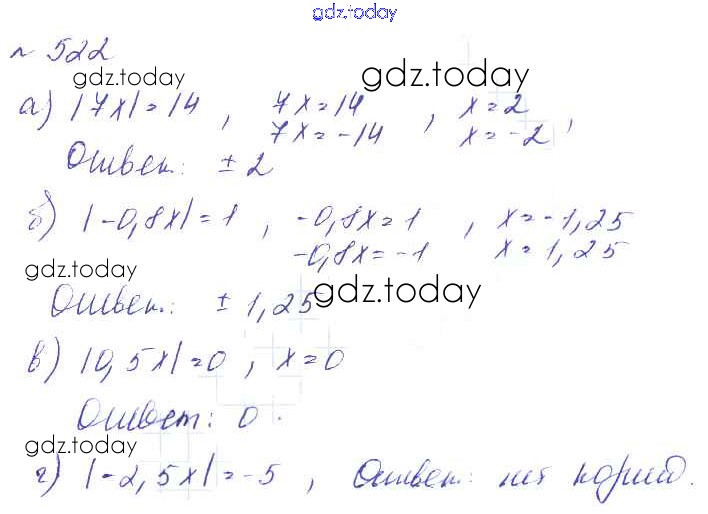 gdz.today
№ 522
gdz.today gdz.today
а) |7x|=14, 7x=14, x=2
7x=-14 x=-2,
Ответ: ±2
б) |-0,8x|=1, -0,8x=1, x=-1,25
-0,8x=-1 x=1,25
gdz.today
Ответ: ±1,25
gdz.today
в) |0,5x|=0, x=0
Ответ: 0.
gdz.today
г) |-2,5x|=-5, Ответ: нет корней.